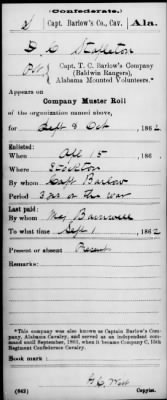 (Confederate.)
S Capt. Barlow's Co., Cav. Ala.
D. C. Stapleton
Pvt, Capt. T. C. Barlow's Company
(Baldwin Rangers),
Alabama Mounted Volunteers.*
Appears on
Company Muster Roll
of the organization named above,
for Sept & Oct, 1862
Enlisted:
When Apl 15, 186
Where Stockton
By whom Capt Barlow
Period 3 yrs or the war
Last paid:
By whom Maj Barnwell
To what time Sept 1, 1862
Present or absent Present
Remarks:
*This company was also known as Captain Barlow's Com-
pany, Alabama Cavalry, and served as an independent com-
mand until September, 1863, when it became Company C, 15th
Regiment Confederate Cavalry.
Book mark:
(642)
Copyist.